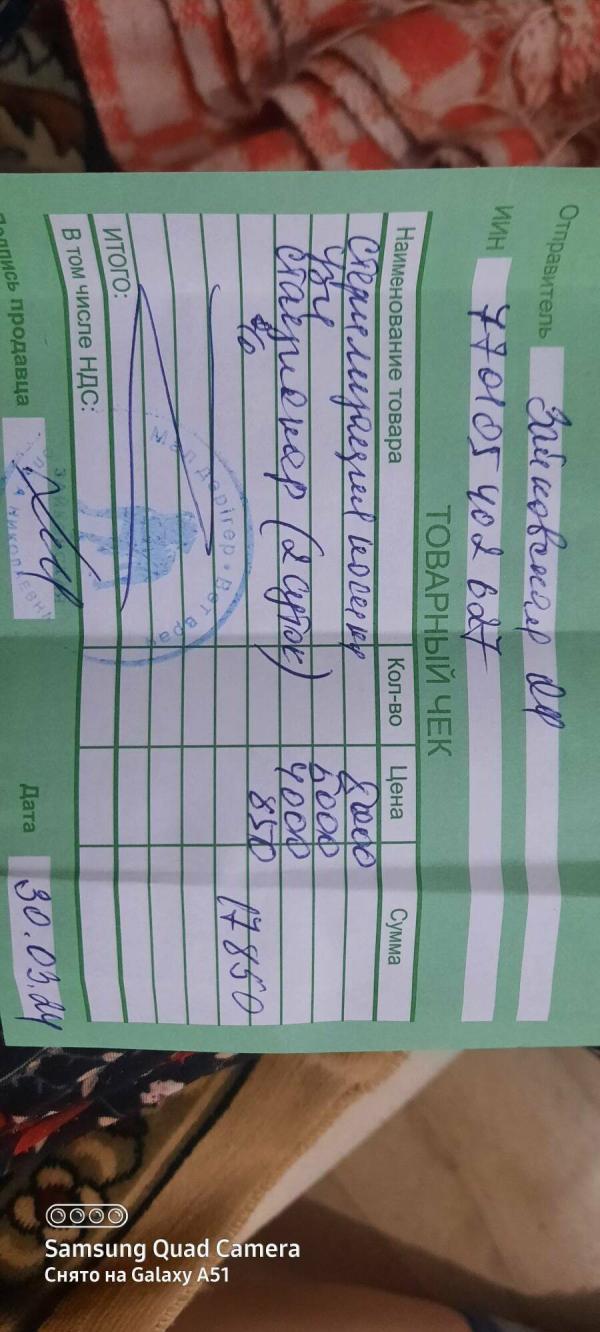 Отправитель Зайковская
ИИН 770105402627
ТОВАРНЫЙ ЧЕК
Наименование товара Кол-во Цена Сумма
стерилизация кошки 8000
УЗИ 5000
стационар (2 суток) 4000
850
17850
ИТОГО:
В том числе НДС:
Мал дәрігер • Вет врач
НИКОЛАЕВНА
Подпись продавца Дата 30.03.24
Samsung Quad Camera
Снято на Galaxy A51